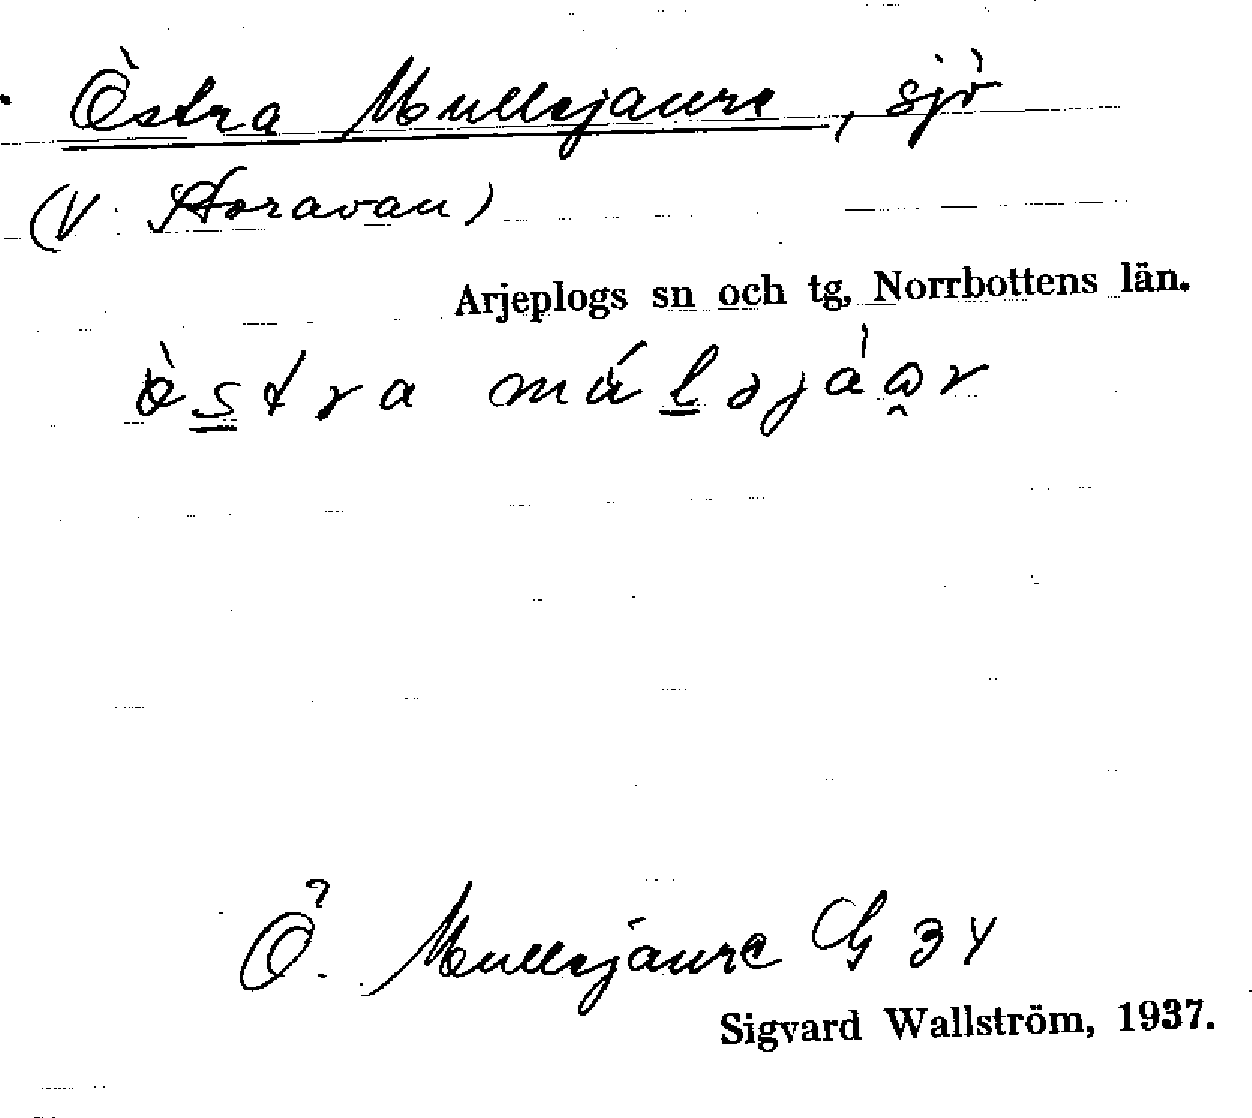 Östra Mullejaure, sjö
(V. Storavan)
Arjeplogs sn och tg, Norrbottens län.
östra múlǝjàar
Ö. Mullejaure G 34
Sigvard Wallström, 1937.